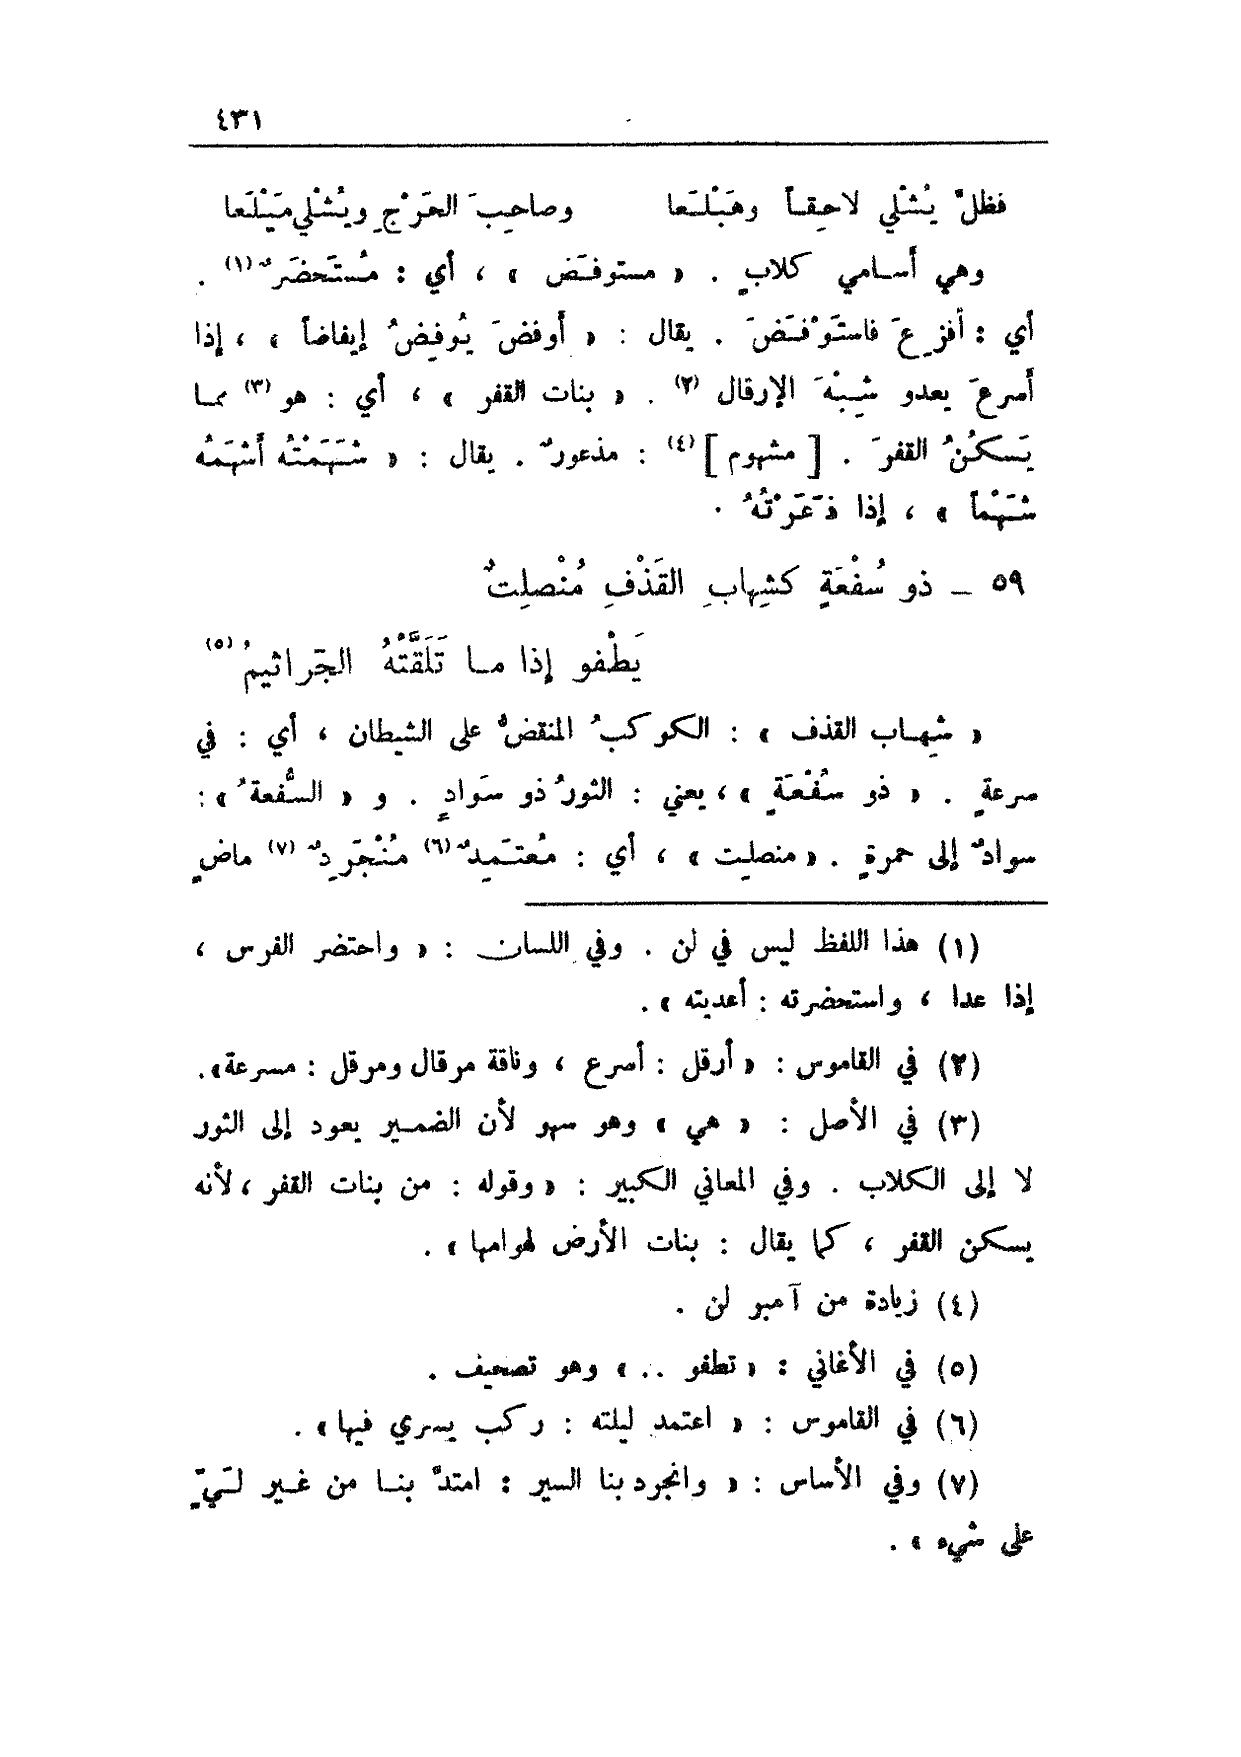 ٤٣١
فظلَّ يُشْلي لاحِقاً وهَبْلَعا وصاحِبَ الحَرْجِ ويُشْلي مَيْلَعا
وهي أسامي كلابٍ . « مستوفَض » ، أي : مُستَحضَرٌ (١) .
أي : أفزِعَ فاستَوْفَضَ . يقال : « أوفضَ يُوفِضُ إيفاضاً » ، إذا
أسرعَ يعدو شِبْهَ الإرقال (٢) . « بنات القفر » ، أي : هو (٣) مما
يَسكُنُ القفرَ . [ مشهوم ] (٤) : مذعورٌ . يقال : « شَهَمْتُهُ أَشْهَمُهُ
شَهْماً » ، إذا ذَعَرْتُهُ .
٥٩ – ذو سُفْعَةٍ كشِهابِ القَذْفِ مُنْصلِتٌ
يَطْفو إذا ما تَلَقَّتْهُ الجَراثيمُ (٥)
« شِهاب القذف » : الكوكبُ المنقضُّ على الشيطان ، أي : في
سرعةٍ . « ذو سُفْعَةٍ » ، يعني : الثورُ ذو سَوادٍ . و « السُّفعةُ » :
سوادٌ إلى حمرةٍ . « منصلِت » ، أي : مُعتَمِدٌ (٦) مُنْجَرِدٌ (٧) ماضٍ
(١) هذا اللفظ ليس في لن . وفي اللسان : « واحتضر الفرس ،
إذا عدا ، واستحضرته : أعديته » .
(٢) في القاموس : « أرقل : أسرع ، وناقة مرقال ومرقل : مسرعة » .
(٣) في الأصل : « هي » وهو سهو لأن الضمير يعود إلى الثور
لا إلى الكلاب . وفي المعاني الكبير : « وقوله : من بنات القفر ، لأنه
يسكن القفر ، كما يقال : بنات الأرض لهوامها » .
(٤) زيادة من آمبر لن .
(٥) في الأغاني : « تطفو .. » وهو تصحيف .
(٦) في القاموس : « اعتمد ليلته : ركب يسري فيها » .
(٧) وفي الأساس : « وانجرد بنا السير : امتدَّ بنا من غير لَيٍّ
على شيء » .